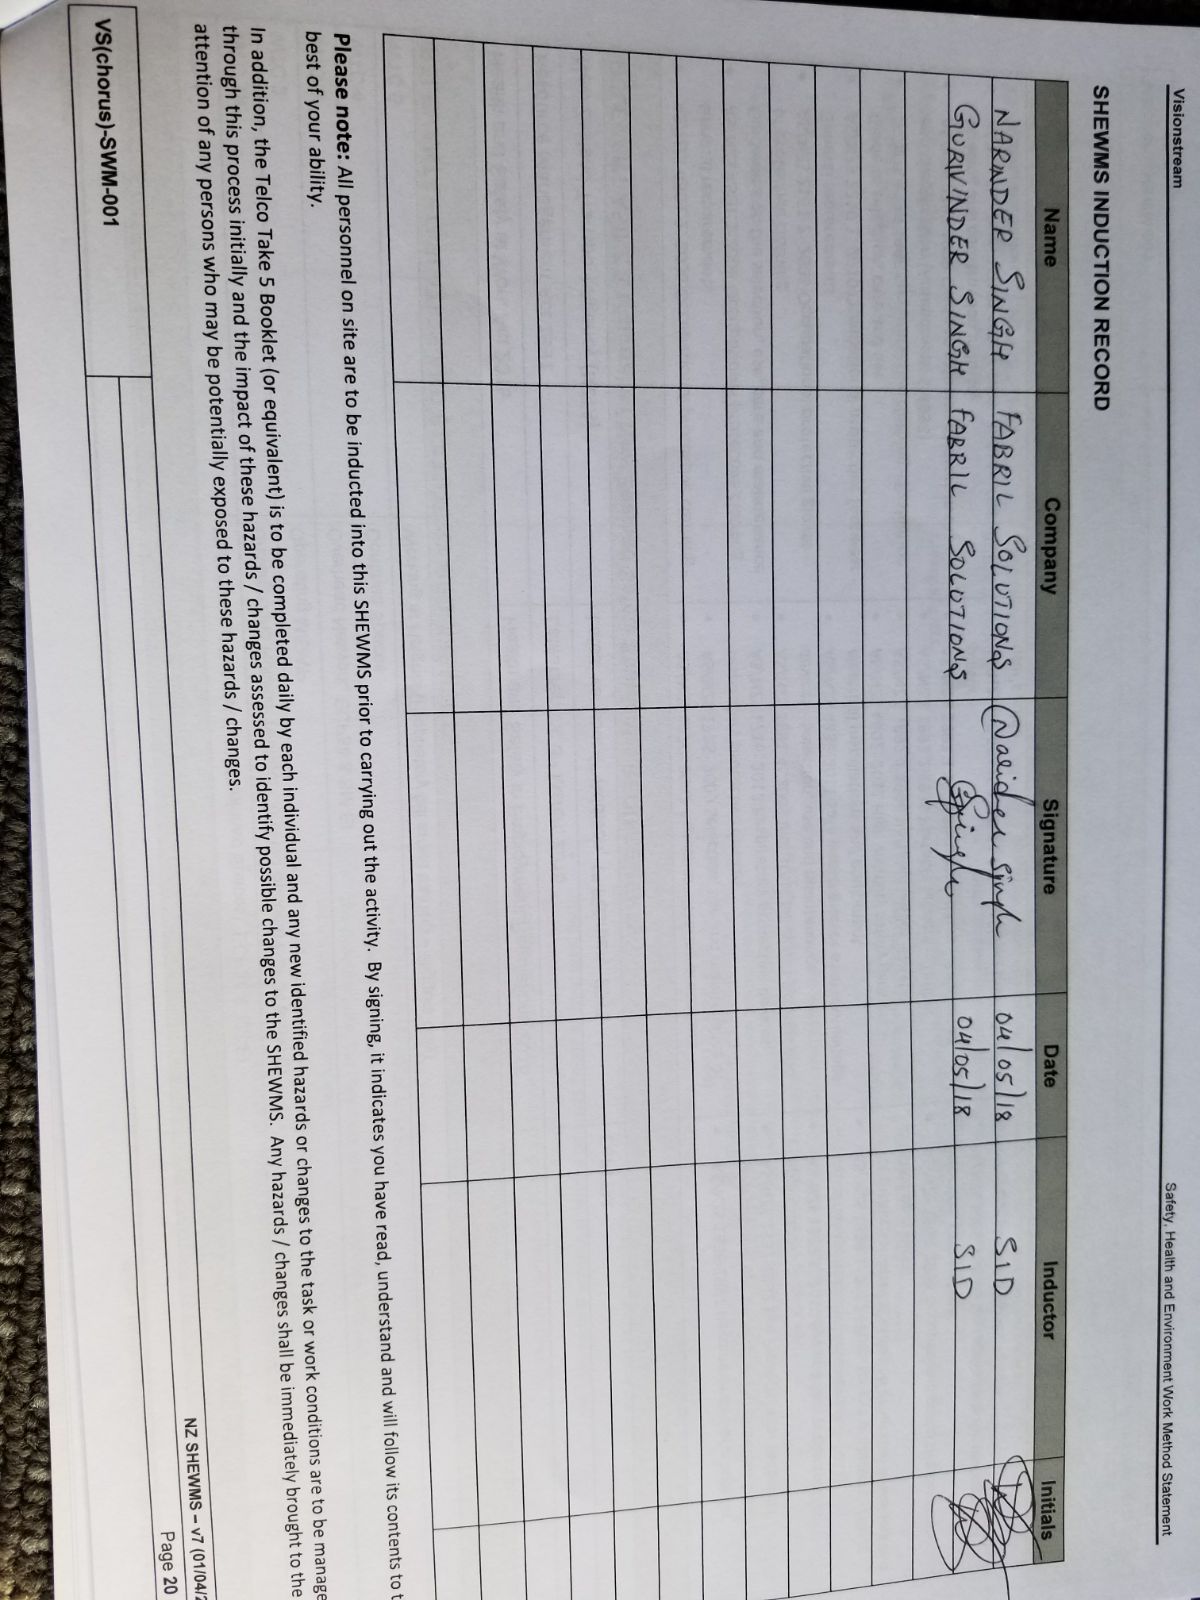 Visionstream
Safety, Health and Environment Work Method Statement
SHEWMS INDUCTION RECORD
Name Company Signature Date Inductor Initials
NARINDER SINGH FABRIL SOLUTIONS Narinder Singh 04/05/18 SID
GURIVINDER SINGH FABRIL SOLUTIONS GSingh 04/05/18 SID
Please note: All personnel on site are to be inducted into this SHEWMS prior to carrying out the activity. By signing, it indicates you have read, understand and will follow its contents to t
best of your ability.
In addition, the Telco Take 5 Booklet (or equivalent) is to be completed daily by each individual and any new identified hazards or changes to the task or work conditions are to be manage
through this process initially and the impact of these hazards / changes assessed to identify possible changes to the SHEWMS. Any hazards / changes shall be immediately brought to the
attention of any persons who may be potentially exposed to these hazards / changes.
NZ SHEWMS – v7 (01/04/2
Page 20
VS(chorus)-SWM-001